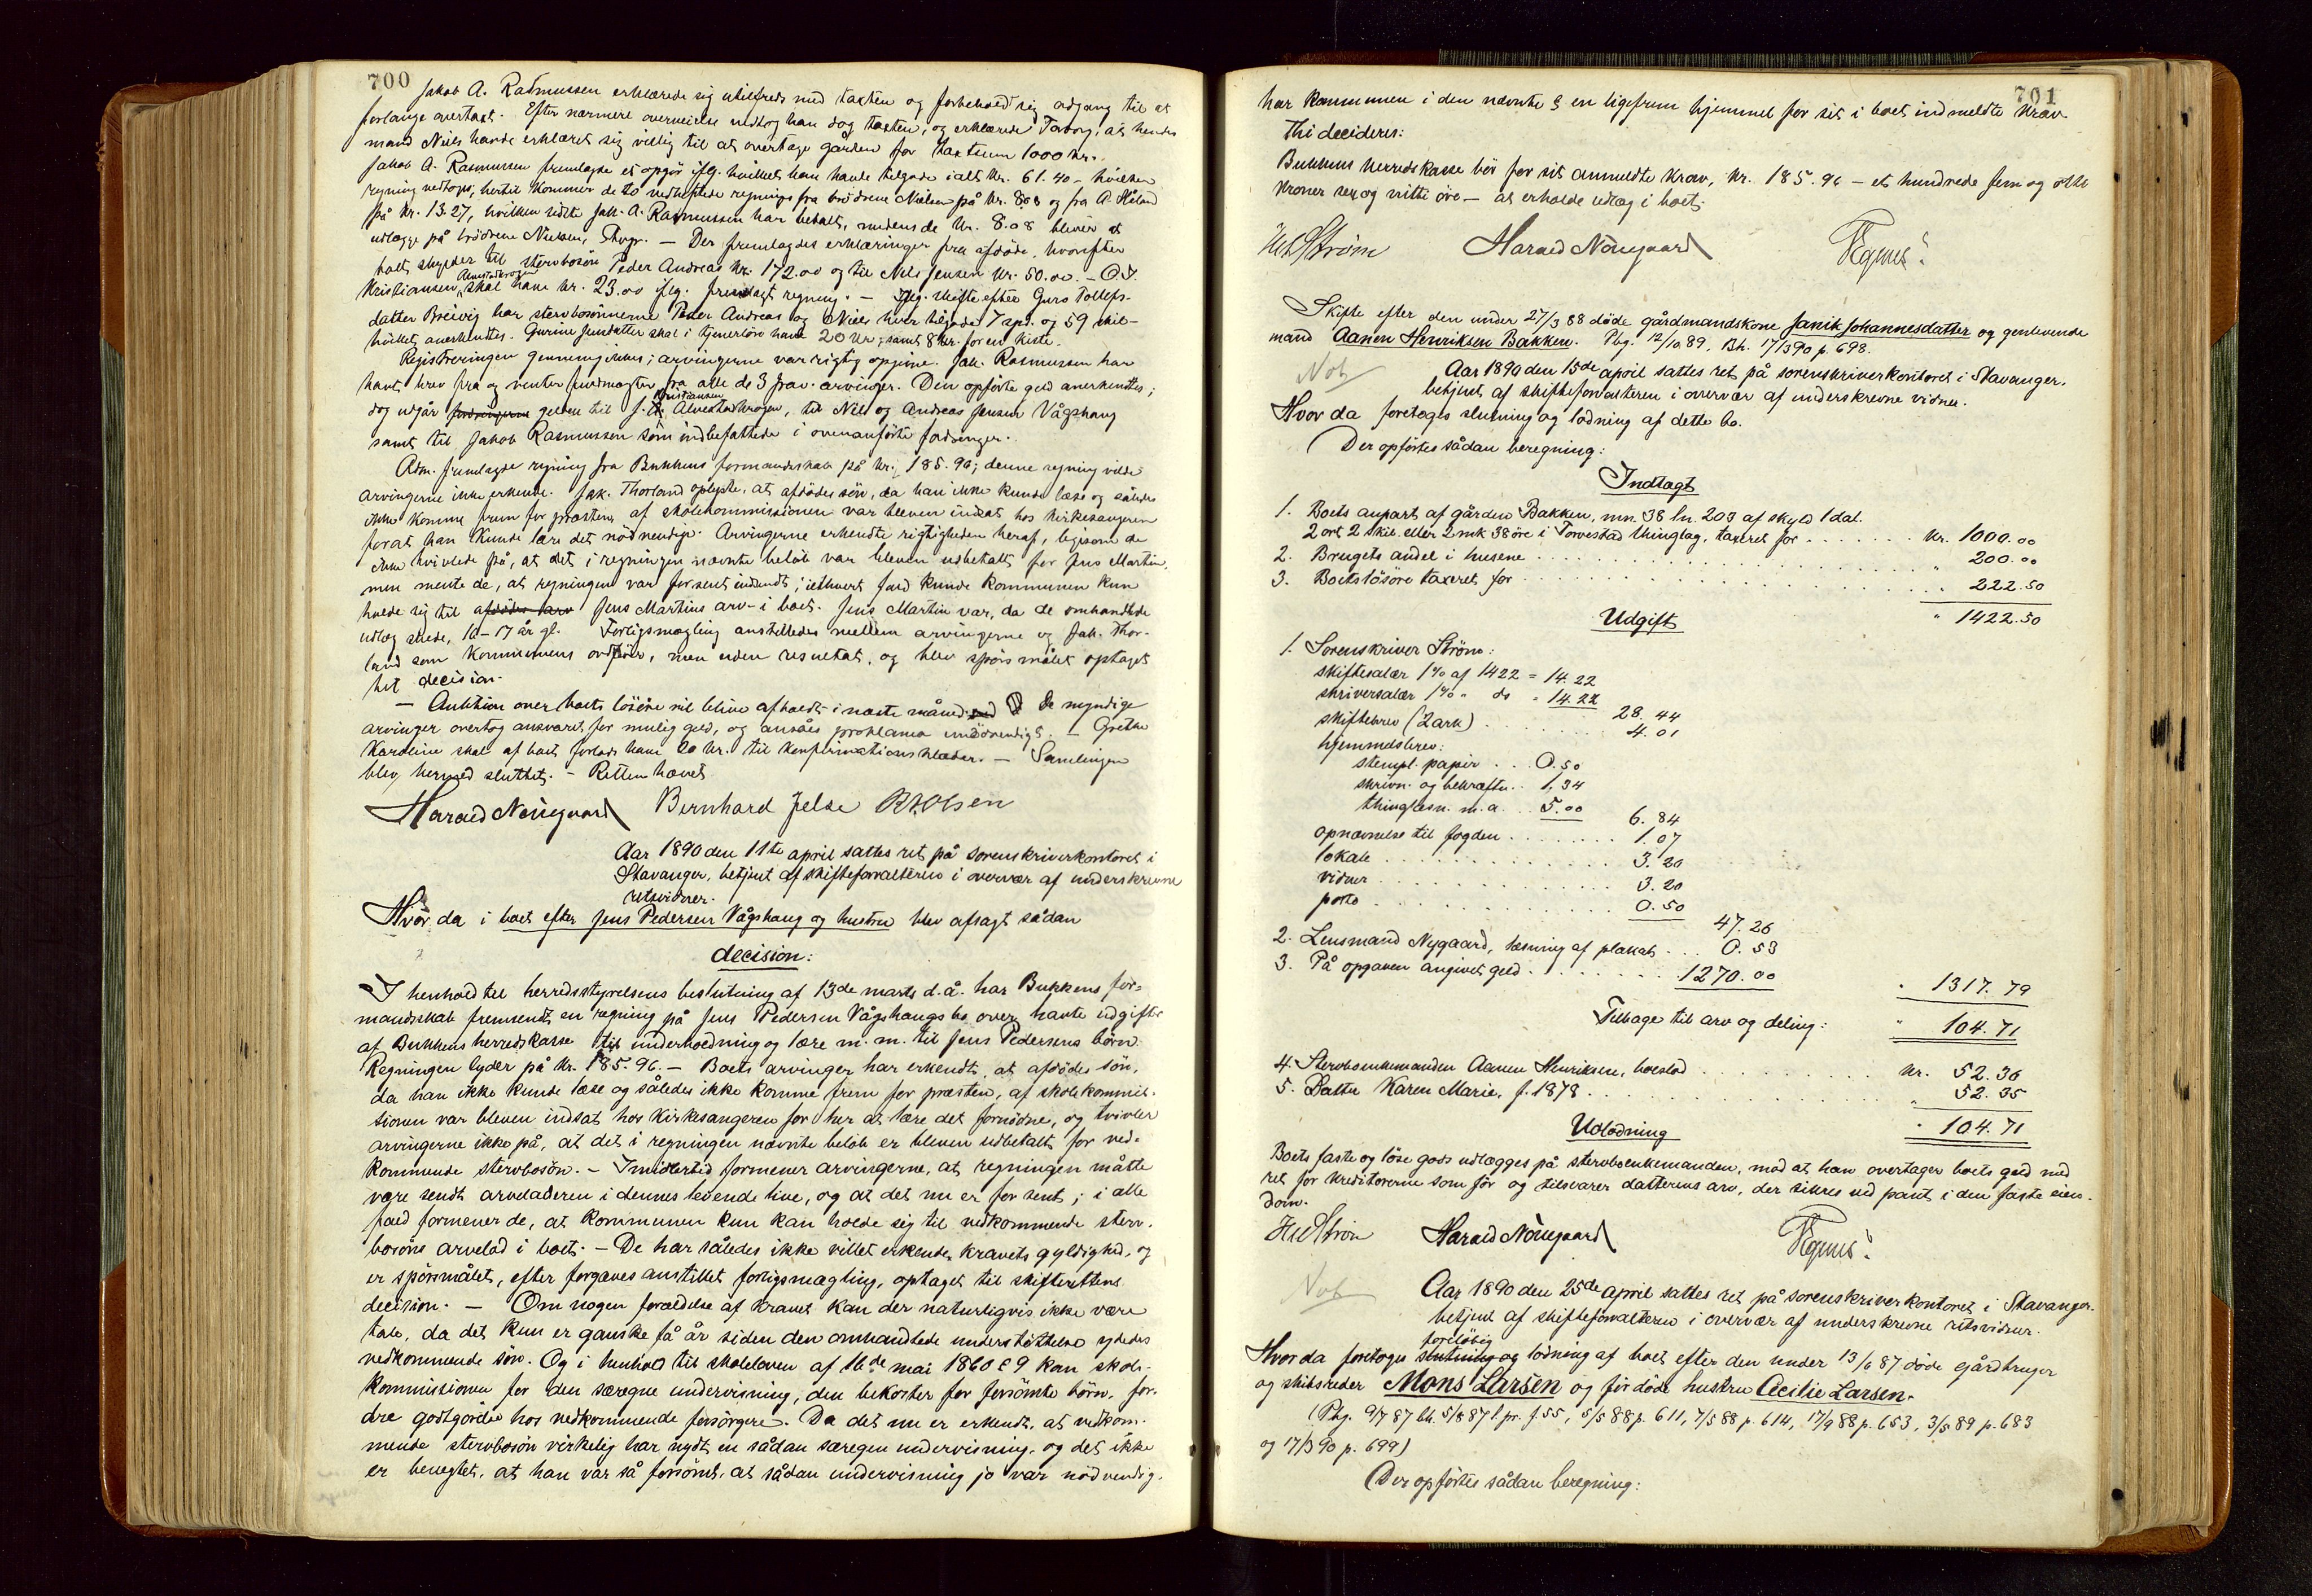 700
Jakob A. Rasmussen erklærede sig utilfreds med taxten og forbeholdt sig adgang til at
forlange overtaxt. Efter nærmere overveielse vedtog han dog taxten, og erklærede Torborg, at hendes
mand Niels havde erklæret sig villig til at overtage gården for taxtsum 1000 kr.
Jakob A. Rasmussen fremlagde et opgjör iflg. hvilket han havde tilgode ialt kr. 61.40 – hvilken
regning vedtoges, hertil kommer de to vedheftede regninger fra brödrene Nielsen på kr. 8.08 og fra A. Håland
på kr. 13.27, hvilken sidste Jak. A. Rasmussen har betalt, medens de kr. 8.08 bliver at
udlægge på brödrene Nielsen, – Der fremlagdes erklæringer fra afdöde, hvorefter
boet skylder til stervbosön Peder Andreas kr. 172.00 og til Nils Jensen kr. 50.00. – O. J.
Kristiansen Alvestadkrogen skal have kr. 23.00 iflg. fremlagt regning. – Iflg. skifte efter Guro Tollefs-
datter Breivig har stervbosönnerne Peder Andreas og Niels hver tilgode 7 spd. og 59 skil-
hvilket anerkendtes. Gurine Jensdatter skal i tjenerlön have 20 kr., samt 8 kr. for en kiste.
Registreringen gennemgikkes; arvingerne var rigtig opgivne. Jak. Rasmussen har
havt brev fra og venter fuldmagter fra alle de 3 frav. arvinger. Den opförte gæld anerkendtes;
dog udgår fordringerne gælden til J. Kristiansen Alvestadkrogen, til Nils og Andreas Jensen Vågshaug
samt til Jakob Rasmussen som indbefattede i ovenanförte fordringer.
Adm. fremlagde regning fra Bukkens formandskab på kr. 185.96; denne regning vilde
arvingerne ikke erkende. Jak. Thorland oplyste, at afdödes sön, da han ikke kunde læse og således
ikke komme frem for præsten, af skolekommissionen var bleven indsat hos kirkesangeren
forat han kunde lære det nödvendige. Arvingerne erkendte rigtigheden heraf, ligesom de
ikke tvivlede på, at det i regningen nævnte belöb var bleven udbetalt for Jens Martin,
men mente de, at regningen var for sent indsendt; iethvert fald kunde kommunen kun
holde sig til afdödes arv Jens Martins arv i boet. Jens Martin var, da de omhandlede
udlæg skede, 16–17 år gl. Forligsmægling anstilledes mellem arvingerne og Jak. Thor-
land som kommunens ordförer, men uden resultat, og blev spörsmålet optaget
til decision.
– Auktion over boets lösöre vil blive afholdt i næste måned. De myndige
arvinger overtog ansvaret for mulig gæld, og ansåes proklama unödvendigt. – Grethe
Karoline skal af boet forlods have 20 kr. til konfirmationsklæder. – Samlingen
blev hermed sluttet. – Retten hævet
Harald Nörregaard Bernhard Jelse R. Olsen
Aar 1890 den 11te april sattes ret på sorenskriverkontoret i
Stavanger, betjent af skifteforvalteren i overvær af underskrevne
retsvidner.
Hvor da i boet efter Jens Pedersen Vågshaug og hustru blev afsagt sådan
decision:
I henhold til herredsstyrelsens beslutning af 13de marts d.å. har Bukkens for-
mandskab fremsendt en regning på Jens Pedersen Vågshaugs bo over havte udgifter
af Bukkens herredskasse til underholdning og lære m. m. til Jens Pedersens börn.
Regningen lyder på kr. 185.96. – Boets arvinger har erkendt, at afdödes sön,
da han ikke kunde læse og således ikke komme frem for præsten, af skolekommis-
sionen var bleven indsat hos kirkesangeren for her at lære det fornödne, og tvivler
arvingerne ikke på, at det i regningen nævnte belöb er bleven udbetalt for ved-
kommende stervbosön. – Imidlertid formener arvingerne, at regningen måtte
være sendt arveladeren i dennes levende live, og at det nu er for sent; i alle
fald formener de, at kommunen kun kan holde sig til vedkommende sterv-
bosöns arvelod i boet. – De har således ikke villet erkende kravets gyldighed, og
er spörsmålet, efter forgæves anstillet forligsmægling, optaget til skifterettens
decision. – Om nogen forældelse af kravet kan der naturligvis ikke være
tale, da det kun er ganske få år siden den omhandlede understöttelse ydedes
vedkommende sön. Og i henhold til skoleloven af 16de mai 1860 § 9 kan skole-
kommissionen for den særegne undervisning, den bekoster for forsömte börn, for-
dre godtgörelse hos vedkommende forsörgere. Da det nu er erkendt, at vedkom-
mende stervbosön virkelig har nydt en sådan særegen undervisning, og det ikke
er benegtet, at han var så forsömt, at sådan undervisning jo var nödvendig,
701
har kommunen i den nævnte § en ligefrem hjemmel for sit i boet indmeldte krav.
Thi decideres:
Bukkens herredskasse bör for sit anmeldte krav, kr. 185.96 – et hundrede fem og otti
kroner sex og nitti öre – at erholde udlæg i boet.
Ström Harald Nörregaard
Skifte efter den under 27/3 88 döde gårdmandskone Janik Johannesdatter og genlevende
mand Aanen Henriksen Bakken. Pbg. 12/10 89, Bh. 17/3 90 p. 698.
Not
Aar 1890 den 15de april sattes ret på sorenskriverkontoret i Stavanger,
betjent af skifteforvalteren i overvær af underskrevne vidner.
Hvor da foretoges slutning og lodning af dette bo.
Der opförtes sådan beregning:
Indtægt
1. Boets anpart af gården Bakken, mn. 38 ln. 203 af skyld 1 dal.
2 ort 2 skil. eller 2 mk 38 öre i Torvestad thinglag, taxeret for . . . . . . . kr. 1000.00
2. Brugets andel i husene . . . . . . . " 200.00
3. Boets lösöre taxeret for . . . . . . . " 222.50
" 1422.50
Udgift
1. Sorenskriver Ström:
skiftesalær 1% af 1422 = 14.22
skriversalær 1% " do " 14.22
28.44
skiftebrev (2 ark) . . . . . . 4.01
hjemmelsbrev:
stempl. papir . . . 0.50
skrivn. og bekræftn. . 1.34
thinglæsn. m.a. . . 5.00
6.84
opnævnelse til fogden . . . . . . . 1.07
lokale . . . . . . . 3.20
vidner . . . . . . . 3.20
porto . . . . . . . 0.50
47.26
2. Lensmand Nygaard, læsning af plakat . . . 0.53
3. På opgaven angivet gæld . . . . . . . 1270.00
" 1317.79
Tilbage til arv og deling: " 104.71
4. Stervboenkemanden Aanen Henriksen, boeslod . . . . . . . kr. 52.36
5. Datter Karen Marie, f. 1878 . . . . . . . " 52.35
" 104.71
Udlodning
Boets faste og löse gods udlægges på stervboenkemanden, mod at han overtager boets gæld med
ret for kreditorerne som för og tilsvarer datterens arv, der sikres ved pant i den faste eien-
dom.
Ström Harald Nörregaard
Not
Aar 1890 den 25de april sattes ret på sorenskriverkontoret i Stavanger
betjent af skifteforvalteren i overvær af underskrevne retsvidner.
Hvor da foretoges foreløbig slutning og lodning af boet efter den under 13/6 87 döde gårdbruger
og skibsreder Mons Larsen og för döde hustru Cecilie Larsen.
(Pbg. 9/7 87 bh. 5/8 87 l. pr. f. 55, 5/5 88 p. 611, 7/5 88 p. 614, 17/9 88 p. 653, 3/5 89 p. 683
og 17/3 90 p. 699)
Der opförtes sådan beregning: